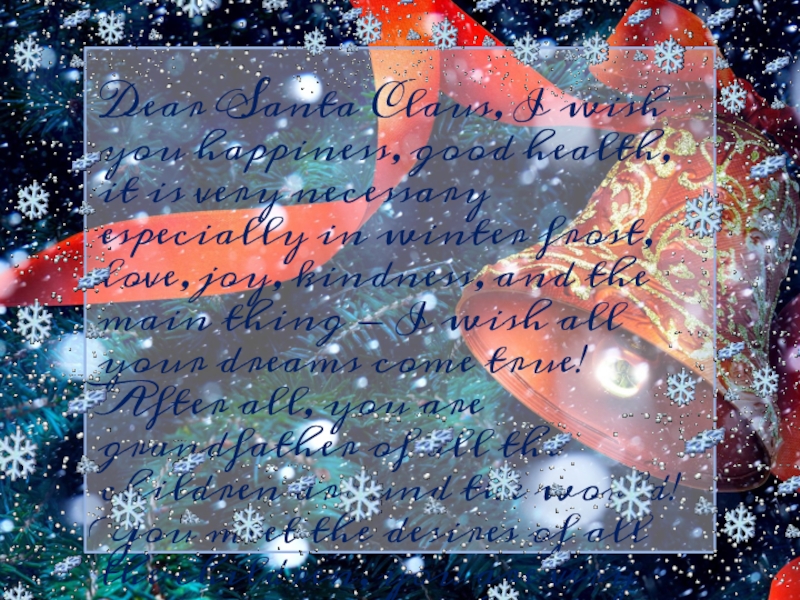 Dear Santa Claus, I wish
you happiness, good health,
it is very necessary
especially in winter frost,
love, joy, kindness, and the
main thing – I wish all
your dreams come true!
After all, you are
grandfather of all the
children around the world!
You meet the desires of all